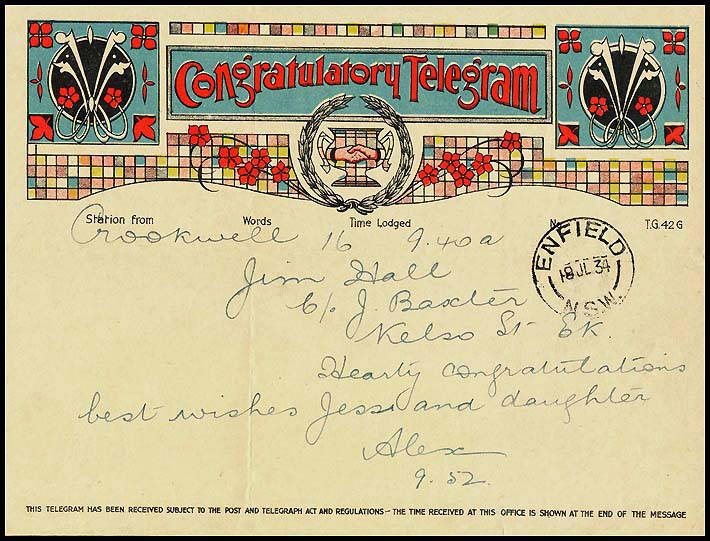 Congratulatory Telegram
Station from Words Time Lodged No. T.G.42 G
Crookwell 16 9.40a
ENFIELD
JL 34
N.S.W.
Jim Hall
C/o J. Baxter
Kelso St Ek.
Hearty congratulations
best wishes Jess and daughter
Alex
9.52.
THIS TELEGRAM HAS BEEN RECEIVED SUBJECT TO THE POST AND TELEGRAPH ACT AND REGULATIONS – THE TIME RECEIVED AT THIS OFFICE IS SHOWN AT THE END OF THE MESSAGE